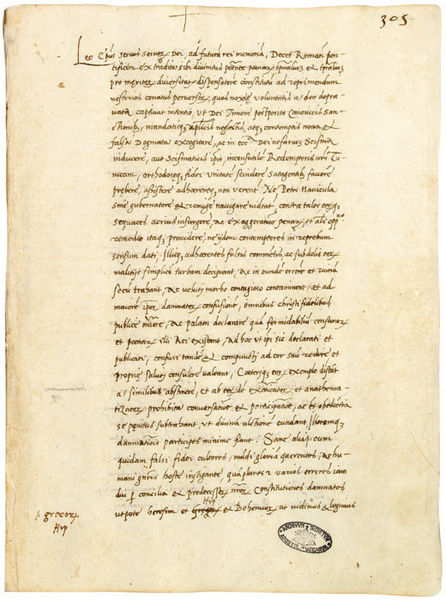 305
Leo Eps servus servor. Dei ad futura rei memoria, Decet Romanu pon-
tificem ex tradita sibi divinitus potate penar. spualiu et tpraliu
pro meritor. diversitate dispensatore constitui ad reprimendum
nefarios conatus perversor. quos noxie voluntatis adeo depra-
vata captivat intentio, ut Dei timore postposito Canonicis san-
ctionib. mandatisq. aplicis neglectis, atq. contemptis nova et
falsa Dogmata excogitare, ac in Dei nefarium Scisma
inducere, aut Scismaticis ipis, inconsutile Redemptoris nri Tu-
nicam, orthodoxeq. fidei unitate scindere satagentib. favore
prebere, assistere adherereq. non verent. Ne Petri Navicula
sine gubernatore et remige navigare videat. contra tales eorq.
sequaces acrius insurgere, Ac exaggeratioe penar. et als oppno
remedio itaq. providere, ne ijdem contemptores in reprobum
sensum dati Illisq. adherentes falsis commetis, ac subdolis eor.
malitijs simplice turbam decipiant, Ac in eunde errore et ruina
secu trahant, Ac veluti morbo contagioso contaminent. et ad
maiore ipor. damnator. confusione, omnibus christi fidelibus
publice ndere, Ac palam declarare qua formidabiliu censurar.
et penar. illi Rei existant, Ad hoc ut ipi sic declarati et
publicati, confusi tande et compuncti ad cor suu redire et
proprie saluti consulere valeant, Ceteriq. eor. exemplo discat
a similibus abstinere, et ab eor. de excoicator. et anathema-
tizator. prohibita conversatioe et participatioe, ac et obedietia
se penitus subtrahant ut divina ultione evadant Illoremq.
damnatiois participes minime fiant. Sane alias cum
quidam falsi fidei cultores, mudi gloria querentes, ac hu-
mani gnris hoste instigante, qua plures et varios errores iam
diu p concilia et predecessor. nror. Constitutiones damnatos
utpote heresim et grecor Bohemior. ut vidimus et legimus
Hus
p. grecor.
Hus